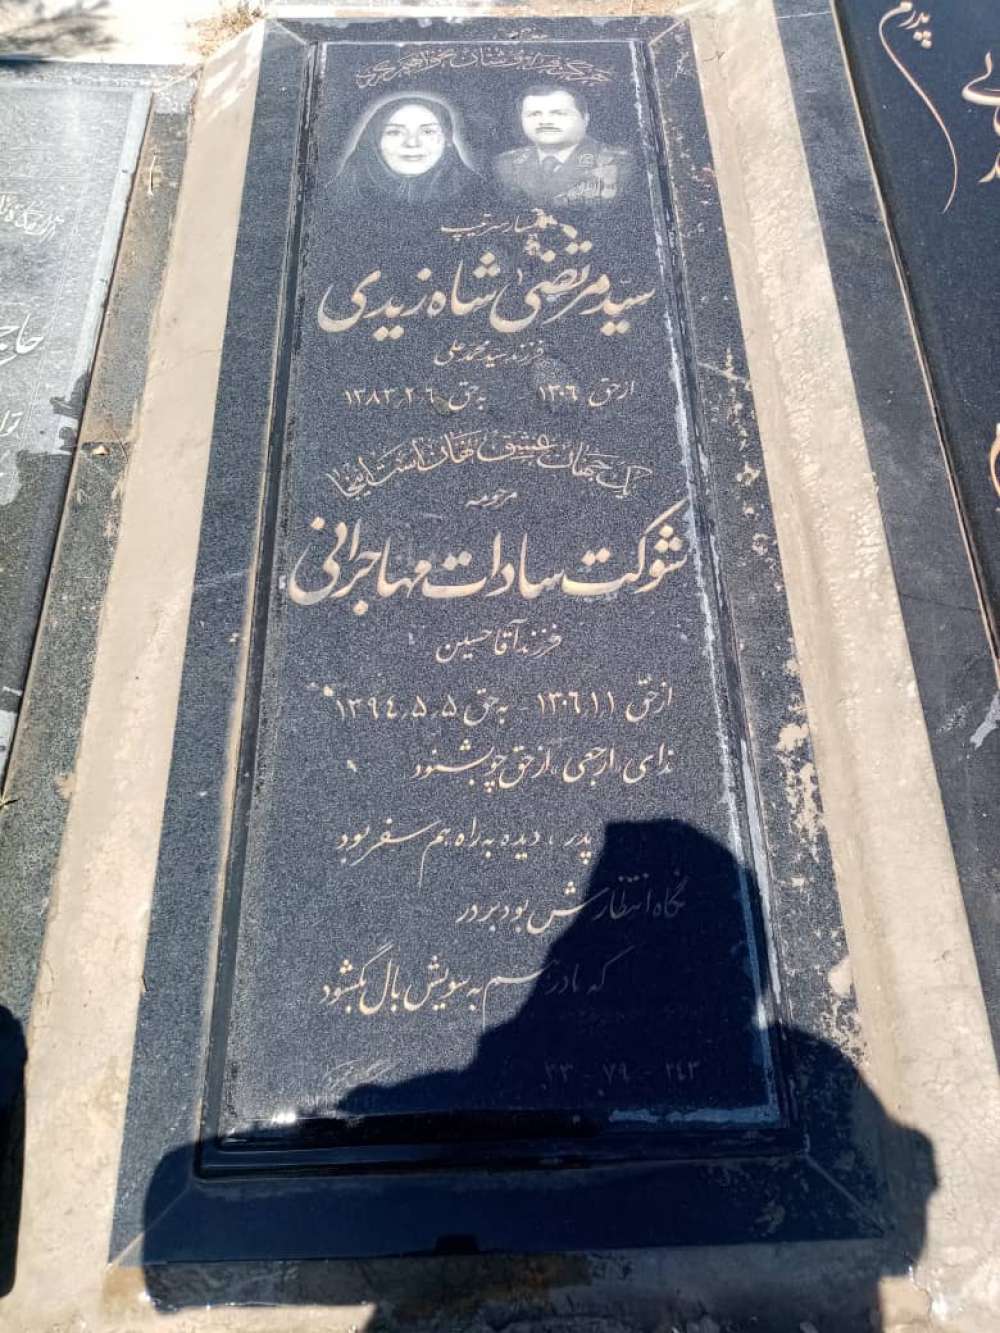 تیمسار سرتیپ
سید مرتضی شاه زیدی
فرزند سید محمد علی
از حق ۱۳۰۶ به حق ۱۳۸۳٫۲٫۶
یک جهان عشق نهان است اینجا
مرحومه
شوکت سادات مهاجرانی
فرزند آقا حسین
از حق ۱۳۰۶٫۱۱ - به حق ۱۳۹۴٫۵٫۵
ندای «ارجعی» از حق چو بشنود
پدر ، دیده به راه هم سفر بود
نگاه انتظارش بود بر در
که مادر هم به سویش بال بگشود
۲۴۳ - ۷۹ - ۳۳
پدرم